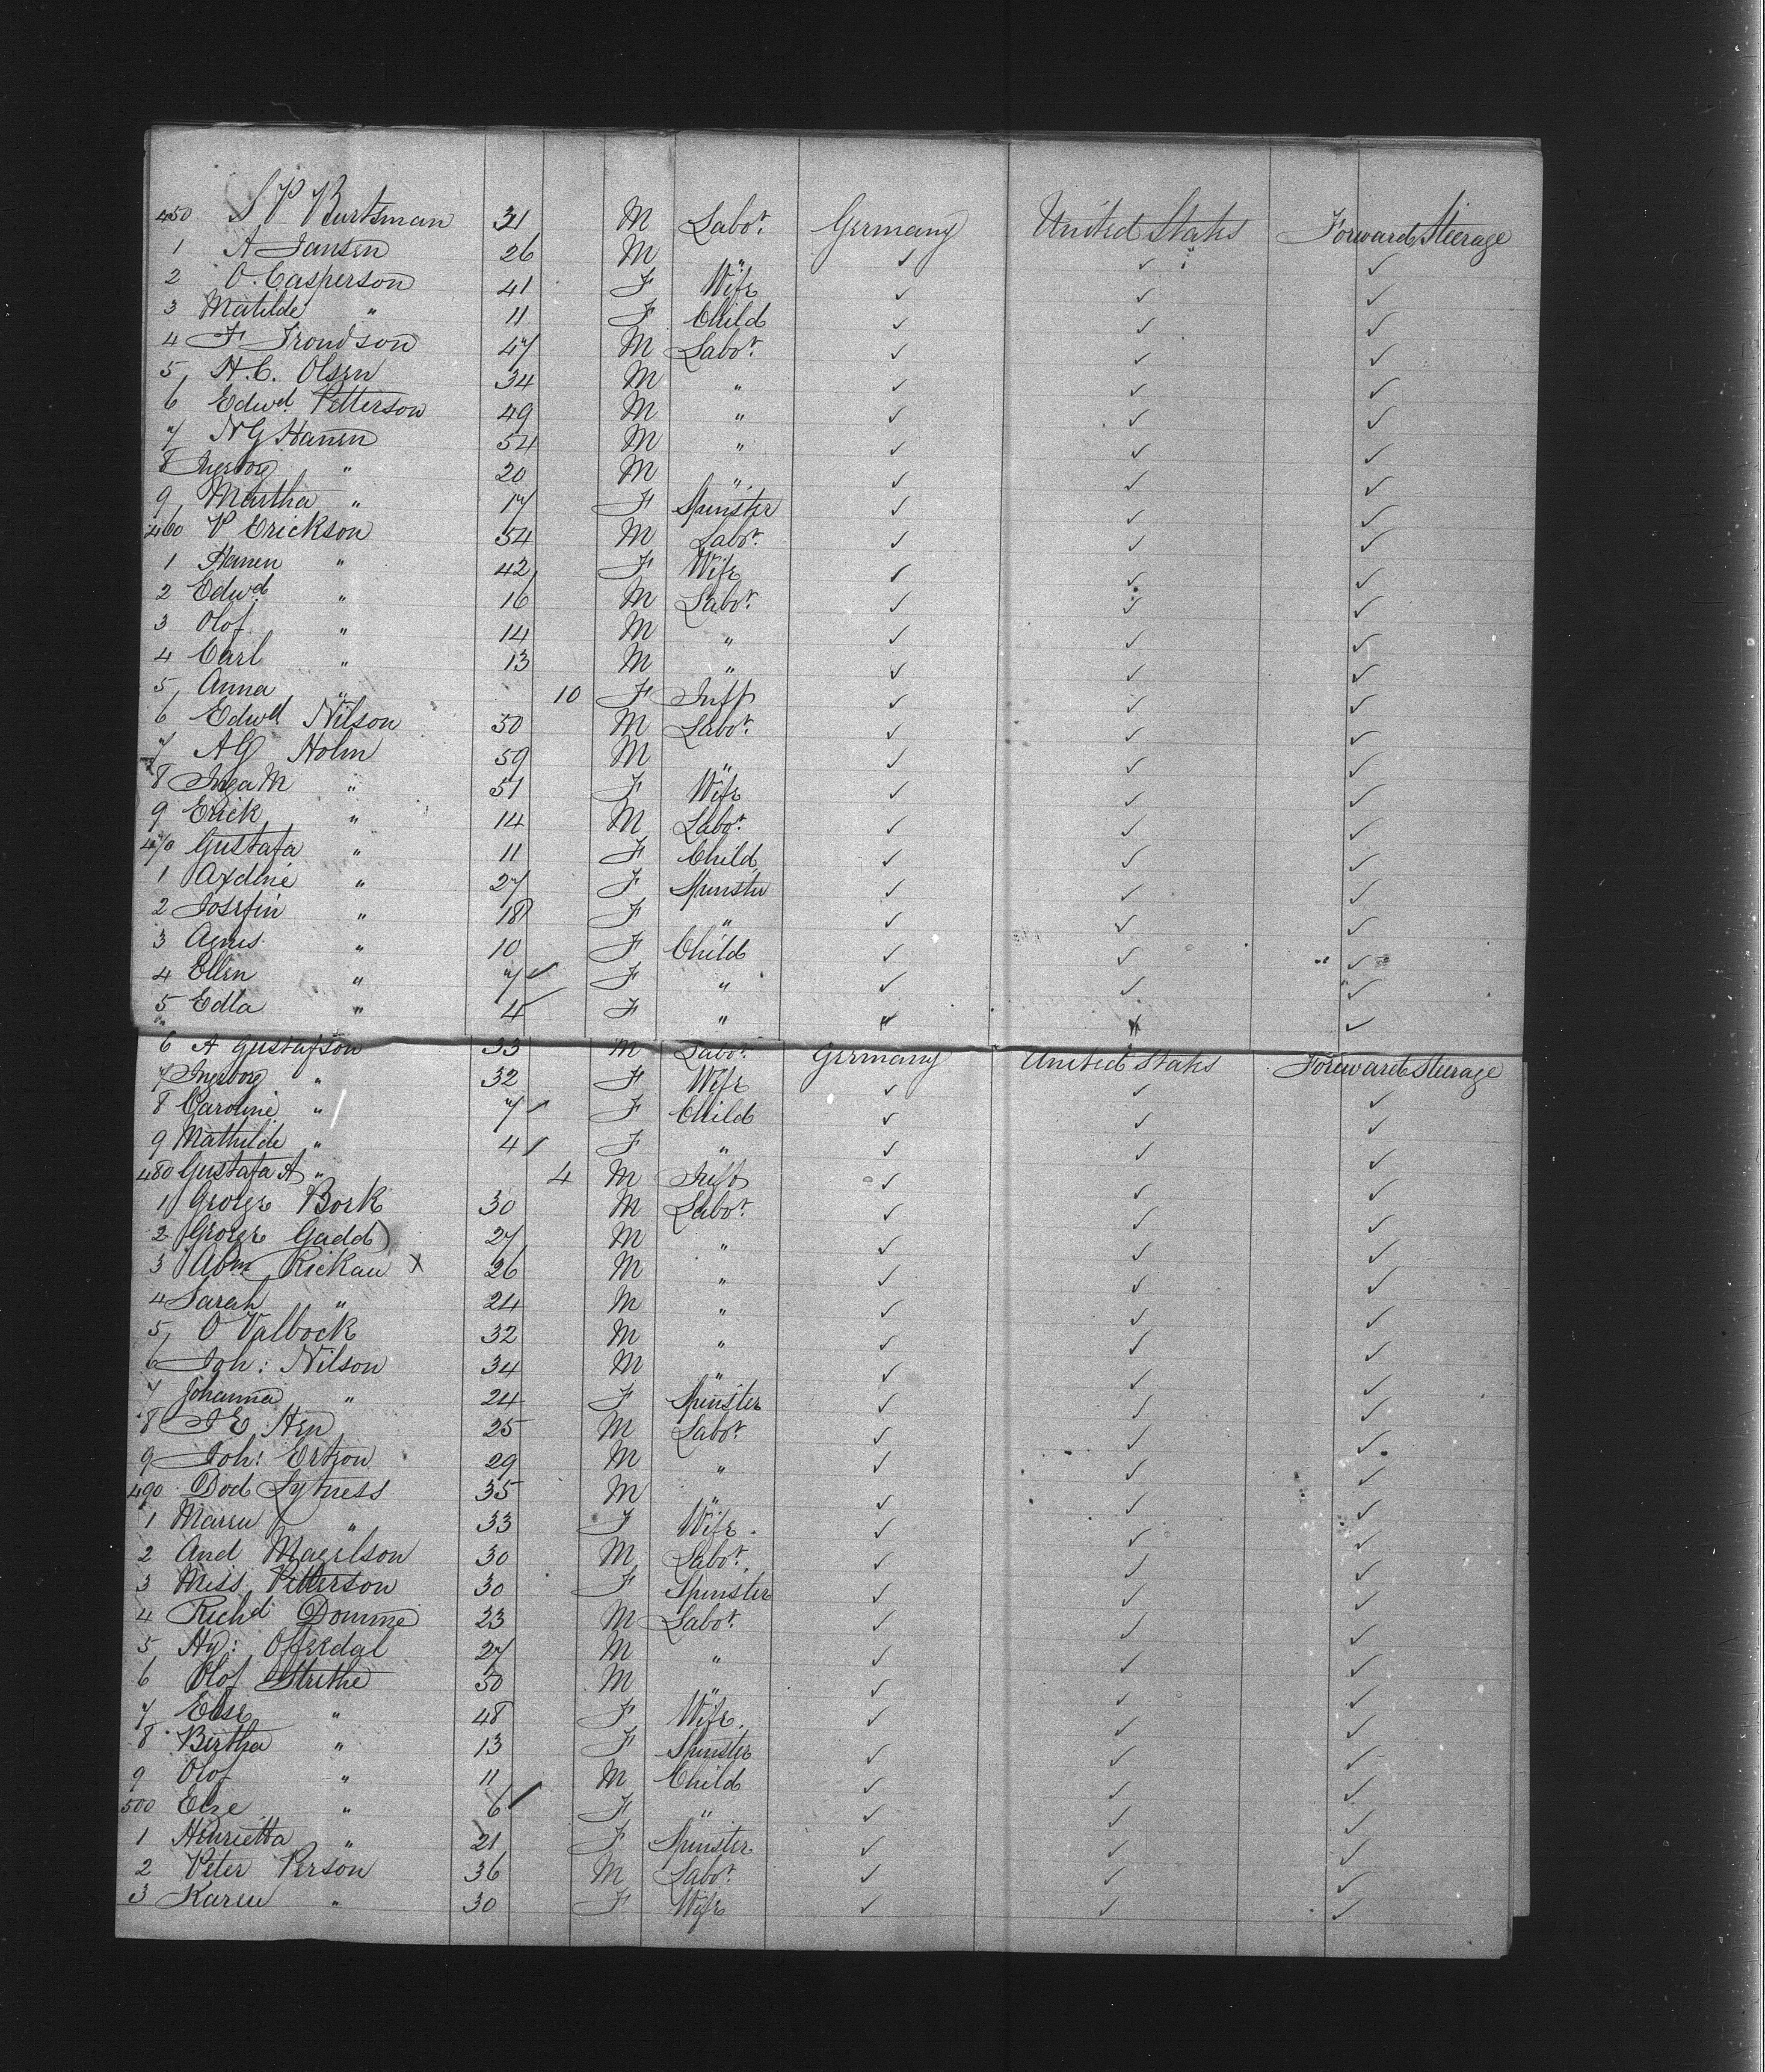 450 S P Burtsman 31 M Labor. Germany United States Forward Steerage
1 A Jansen 26 M " ✓ ✓ ✓
2 O. Casperson 41 F Wife ✓ ✓ ✓
3 Matilde " 11 F Child ✓ ✓ ✓
4 F Trondson 47 M Labor. ✓ ✓ ✓
5 H. C. Olsen 34 M " ✓ ✓ ✓
6 Edwd. Petterson 49 M " ✓ ✓ ✓
7 N G Hansen 54 M " ✓ ✓ ✓
8 Ingeborg " 20 M " ✓ ✓ ✓
9 Martha " 17 F Spinster ✓ ✓ ✓
460 P Erickson 54 M Labor. ✓ ✓ ✓
1 Hanen " 42 F Wife ✓ ✓ ✓
2 Edwd " 16 M Labor. ✓ ✓ ✓
3 Olof " 14 M " ✓ ✓ ✓
4 Carl " 13 M " ✓ ✓ ✓
5 Anna " 10 F Inft ✓ ✓ ✓
6 Edwd Nilson 30 M Labor. ✓ ✓ ✓
7 A G Holm 59 M " ✓ ✓ ✓
8 Inga M " 51 F Wife ✓ ✓ ✓
9 Erick " 14 M Labor. ✓ ✓ ✓
470 Gustafa " 11 F Child ✓ ✓ ✓
1 Axeline " 27 F Spinster ✓ ✓ ✓
2 Josefin " 18 F " ✓ ✓ ✓
3 Agnes " 10 F Child ✓ ✓ ✓
4 Ellen " 7 ✓ F " ✓ ✓ ✓
5 Edla " 4 F " " " ✓
6 A Gustafson 33 M Labor. Germany United States Forward Steerage
7 Ingeborg " 32 F Wife ✓ ✓ ✓
8 Caroline " 7 ✓ F Child ✓ ✓ ✓
9 Mathilde " 4 ✓ F " ✓ ✓ ✓
480 Gustafa A " 4 M Inft ✓ ✓ ✓
1 George Bork 30 M Labor. ✓ ✓ ✓
2 George Gadd 27 M " ✓ ✓ ✓
3 Abm Rickau X 26 M " ✓ ✓ ✓
4 Sarah " 24 M " ✓ ✓ ✓
5 O Valbock 32 M " ✓ ✓ ✓
6 Joh: Nilson 34 M " ✓ ✓ ✓
7 Johanna " 24 F Spinster ✓ ✓ ✓
8 J E Hen 25 M Labor. ✓ ✓ ✓
9 Joh: Ertzon 29 M " ✓ ✓ ✓
490 Dod Lytness 35 M " ✓ ✓ ✓
1 Maren " 33 F Wife. ✓ ✓ ✓
2 And Magelson 30 M Labor. ✓ ✓ ✓
3 Miss Petterson 30 F Spinster ✓ ✓ ✓
4 Richd Domme 23 M Labor. ✓ ✓ ✓
5 Hy: Offerdal 27 M " ✓ ✓ ✓
6 Olof Strethe 50 M " ✓ ✓ ✓
7 Else " 48 F Wife. ✓ ✓ ✓
8 Bertha " 13 F Spinster ✓ ✓ ✓
9 Olof " 11 M Child ✓ ✓ ✓
500 Elze " 6 ✓ F " ✓ ✓ ✓
1 Henrietta " 21 F Spinster ✓ ✓ ✓
2 Peter Person 36 M Labor. ✓ ✓ ✓
3 Karen " 30 F Wife ✓ ✓ ✓